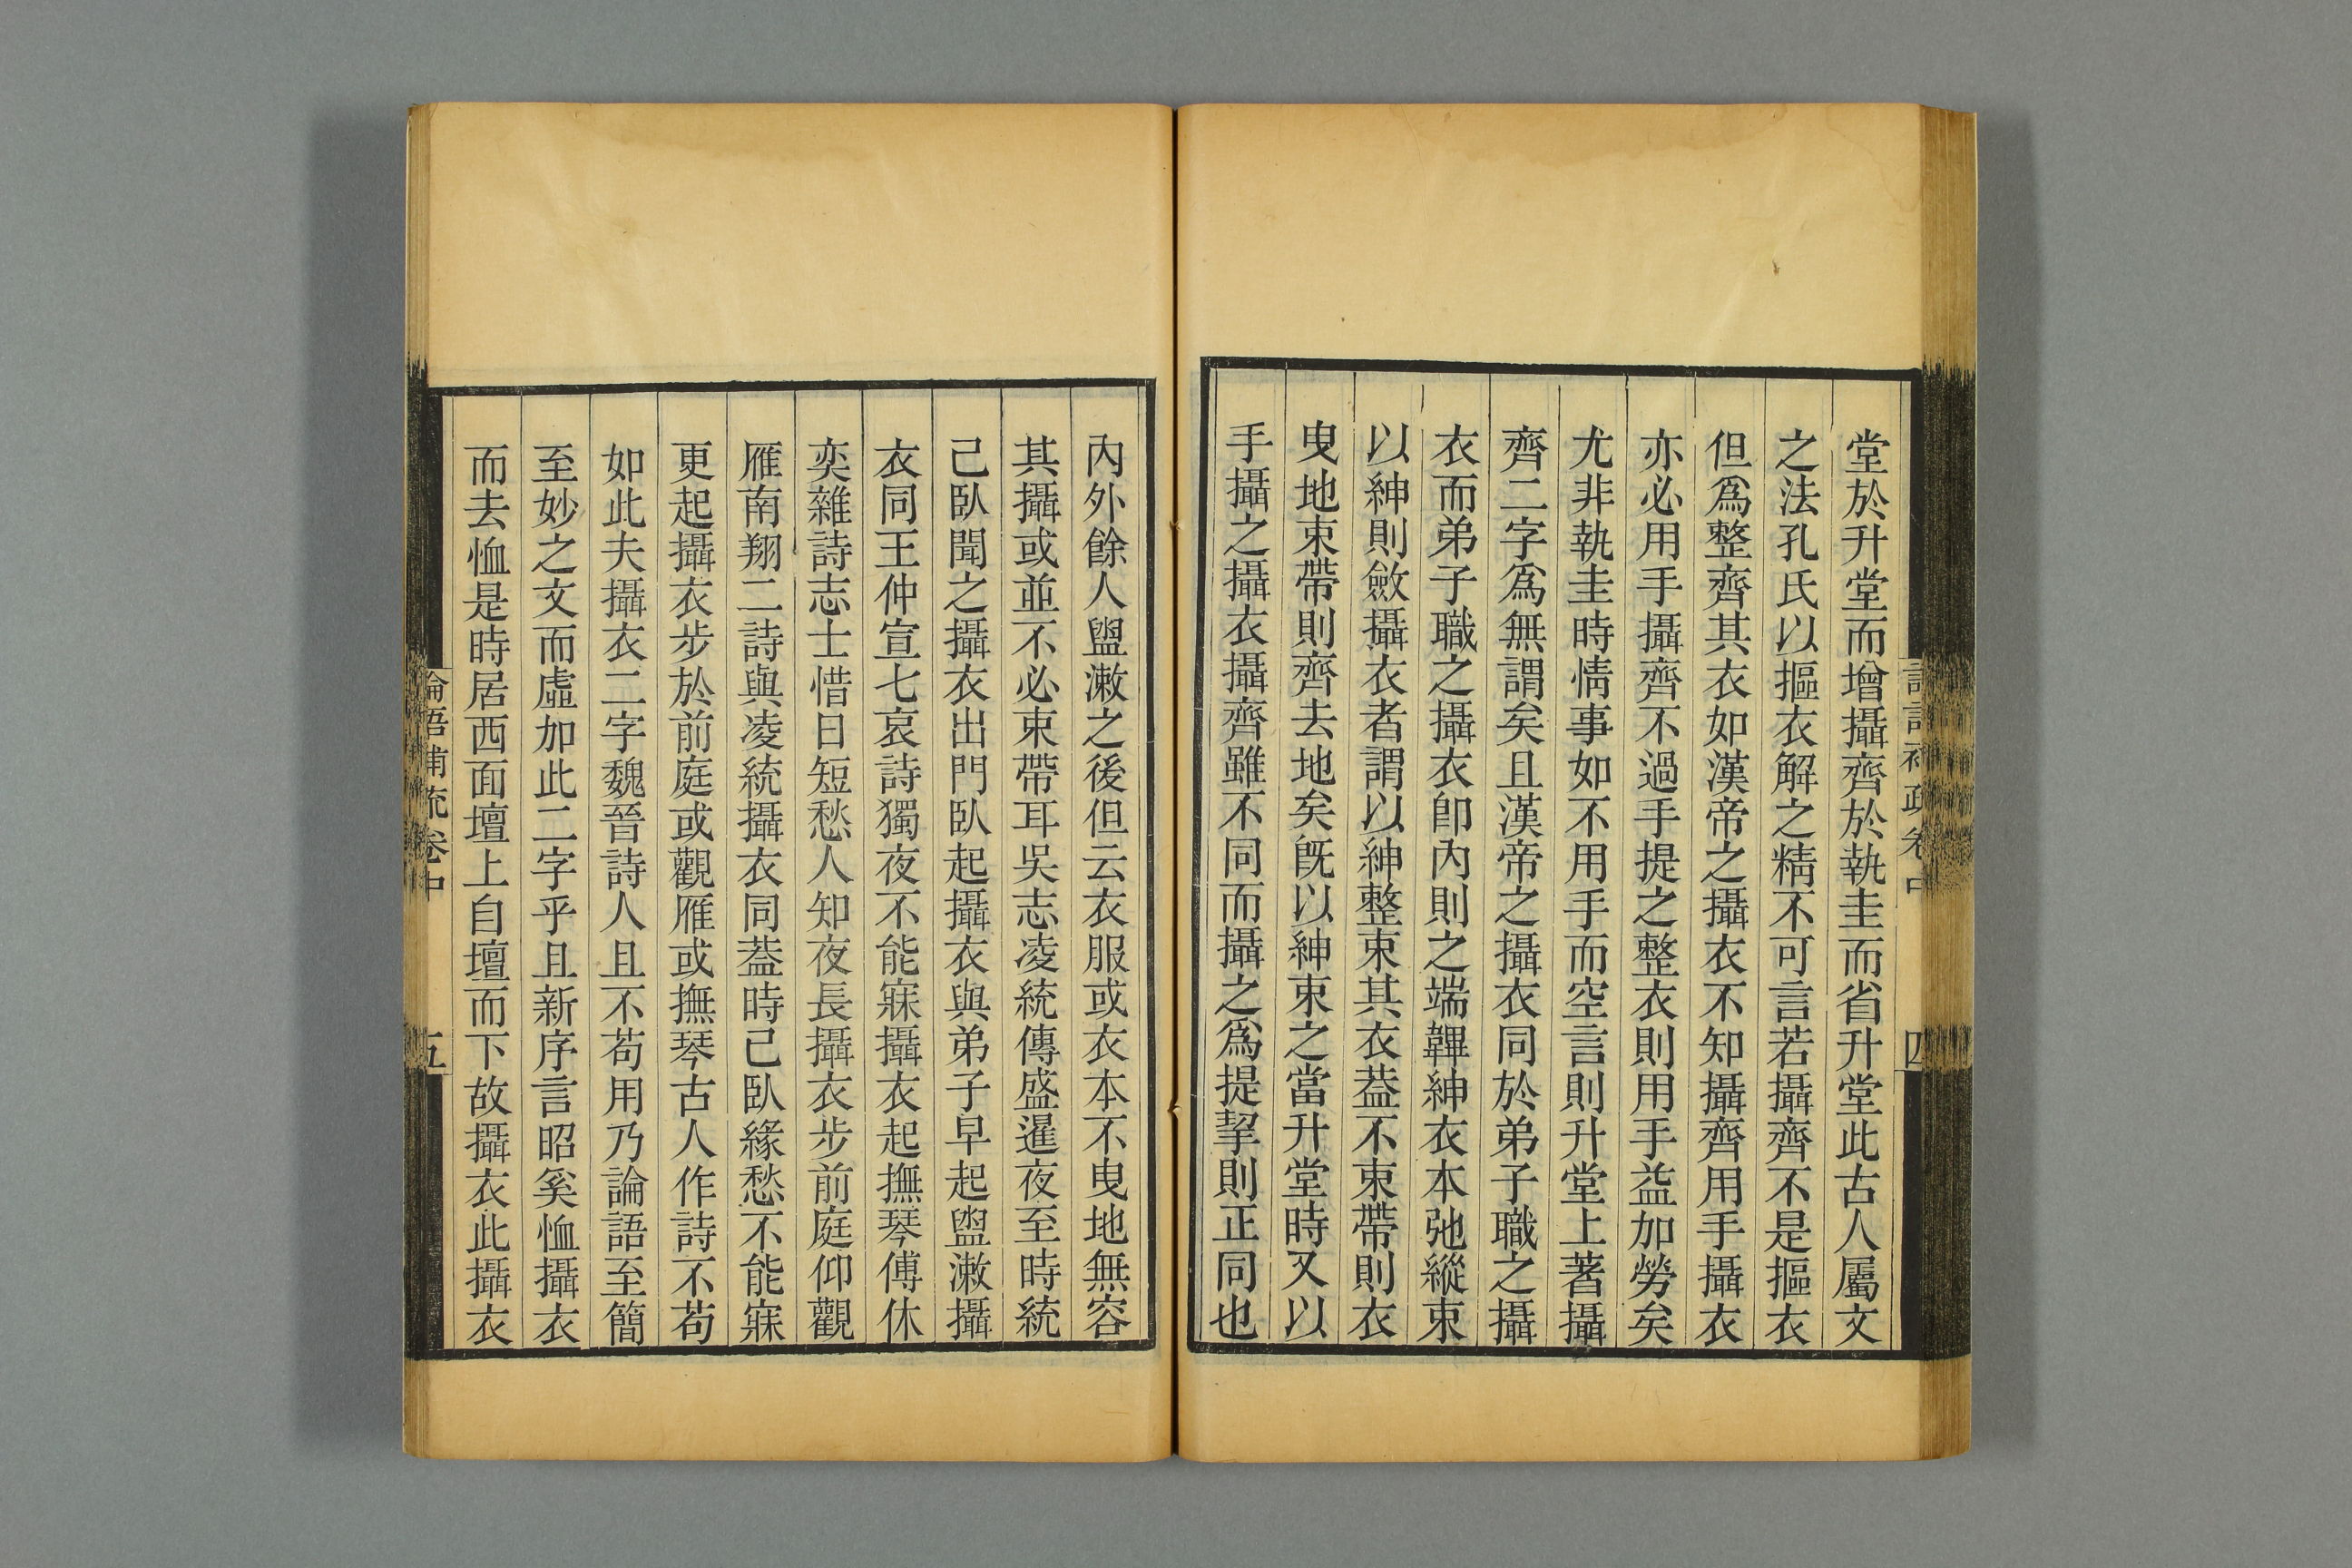 堂於升堂而增攝齊於執圭而省升堂此古人屬文
之法孔氏以摳衣解之精不可言若攝齊不是摳衣
但爲整齊其衣如漢帝之攝衣不知攝齊用手攝衣
亦必用手攝齊不過手提之整衣則用手益加勞矣
尤非執圭時情事如不用手而空言則升堂上著攝
齊二字爲無謂矣且漢帝之攝衣同於弟子職之攝
衣而弟子職之攝衣卽內則之端韠紳衣本弛縱束
以紳則斂攝衣者謂以紳整束其衣葢不束帶則衣
曳地束帶則齊去地矣旣以紳束之當升堂時又以
手攝之攝衣攝齊雖不同而攝之爲提挈則正同也
四
內外餘人盥漱之後但云衣服或衣本不曳地無容
其攝或並不必束帶耳吳志凌統傳盛暹夜至時統
己臥聞之攝衣出門臥起攝衣與弟子早起盥漱攝
衣同王仲宣七哀詩獨夜不能寐攝衣起撫琴傅休
奕雜詩志士惜日短愁人知夜長攝衣步前庭仰觀
雁南翔二詩與凌統攝衣同葢時己臥緣愁不能寐
更起攝衣步於前庭或觀雁或撫琴古人作詩不苟
如此夫攝衣二字魏晉詩人且不苟用乃論語至簡
至妙之文而虛加此二字乎且新序言昭奚恤攝衣
而去恤是時居西面壇上自壇而下故攝衣此攝衣
論語補疏卷中
五